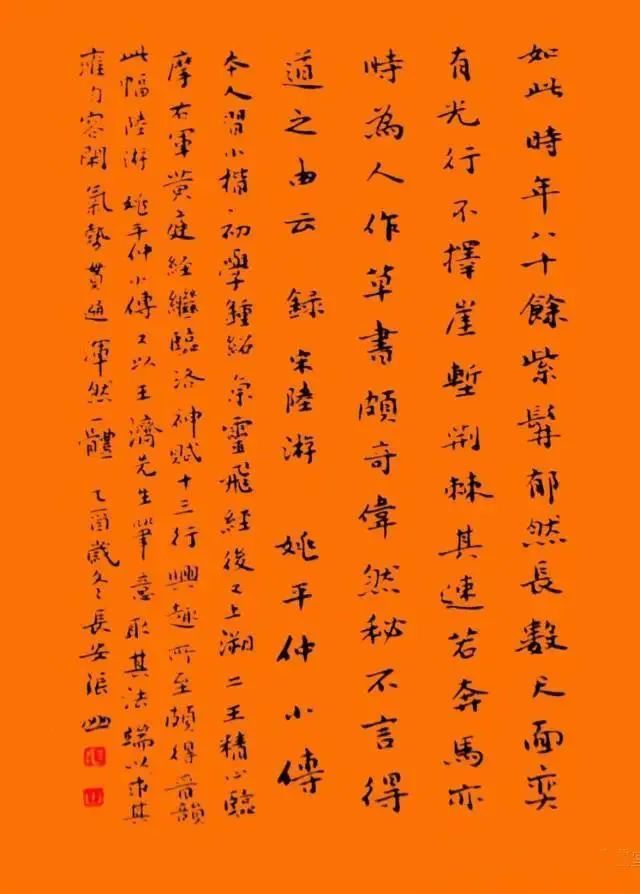 如此時年八十餘紫髯郁然長數尺面奕
有光行不擇崖塹荆棘其速若奔馬亦
時為人作草書頗奇偉然秘不言得
道之由云 録宋陸游 姚平仲小傳
本人習小楷初學鍾紹京靈飛經後又上溯二王精心臨
摩右軍黄庭經繼臨洛神賦十三行興趣所至頗得晋韻
此幅陸游姚平仲小傳又以王濟先生筆意取其法端以求其
雍内容閑氣勢貫通渾然一體 乙酉歲冬長安張